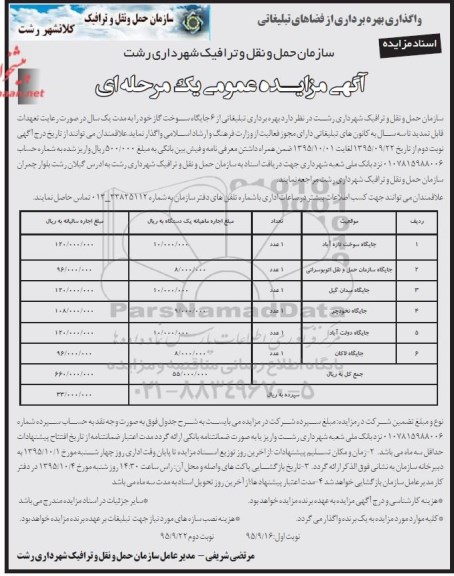 سازمان حمل و نقل و ترافیک
کلانشهر رشت
واگذاری بهره برداری از فضاهای تبلیغاتی
اسناد مزایده
سازمان حمل و نقل و ترافیک شهرداری رشت
آگهی مزایده عمومی یک مرحله ای
سازمان حمل و نقل و ترافیک شهرداری رشت در نظر دارد بهره برداری تبلیغاتی از ۶ جایگاه سوخت گاز خود را به مدت یک سال در صورت رعایت تعهدات
قابل تمدید تا سه سال به کانون های تبلیغاتی دارای مجوز فعالیت از وزارت فرهنگ و ارشاد اسلامی واگذار نماید علاقمندان می توانند از تاریخ درج آگهی
نوبت دوم از تاریخ ۱۳۹۵/۰۹/۲۲ لغایت ۱۳۹۵/۱۰/۰۱ ضمن همراه داشتن معرفی نامه و فیش بین بانکی به مبلغ ۵۰۰/۰۰۰ ریال واریز شده به شماره حساب
۰۱۰۷۸۱۵۹۸۸۰۰۶ نزد بانک ملی شعبه شهرداری جهت دریافت اسناد به سازمان حمل و نقل و ترافیک شهرداری رشت به آدرس گیلان رشت بلوار چمران
سازمان حمل و نقل و ترافیک شهرداری رشت مراجعه نمایند.
علاقمندان می توانند جهت کسب اطلاعات بیشتر در ساعات اداری با شماره تلفن های دفتر سازمان به شماره ۳۳۸۲۵۱۱۲_۰۱۳ تماس حاصل نمایند.
ردیف موقعیت تعداد مبلغ اجاره ماهیانه یک دستگاه به ریال مبلغ اجاره سالیانه به ریال
۱ جایگاه سوخت تازه آباد ۱ عدد ۱۰/۰۰۰/۰۰۰ ۱۲۰/۰۰۰/۰۰۰
۲ جایگاه سازمان حمل و نقل اتوبوسرانی ۱ عدد ۸/۰۰۰/۰۰۰ ۹۶/۰۰۰/۰۰۰
۳ جایگاه میدان گیل ۱ عدد ۱۰/۰۰۰/۰۰۰ ۱۲۰/۰۰۰/۰۰۰
۴ جایگاه نخودچر ۱ عدد ۹/۰۰۰/۰۰۰ ۱۰۸/۰۰۰/۰۰۰
۵ جایگاه دولت آباد ۱ عدد ۱۰/۰۰۰/۰۰۰ ۱۲۰/۰۰۰/۰۰۰
۶ جایگاه لاکان ۱ عدد ۸/۰۰۰/۰۰۰ ۹۶/۰۰۰/۰۰۰
جمع کل به ریال ۵۵/۰۰۰/۰۰۰ ۶۶۰/۰۰۰/۰۰۰
سپرده به ریال ۳۳/۰۰۰/۰۰۰
ParsNamadData
۰۲۱-۸۸۳۴۹۶۷۰-۵
نوع و مبلغ تضمین شرکت در مزایده: مبلغ سپرده شرکت در مزایده می بایست به شرح جدول فوق به صورت وجه نقد به حساب سپرده شماره
۰۱۰۷۸۱۵۹۸۸۰۰۶ نزد بانک ملی شعبه شهرداری رشت واریز یا به صورت ضمانتنامه بانکی ارائه گردد مدت اعتبار ضمانتنامه از تاریخ افتتاح پیشنهادات
حداقل سه ماه می باشد. ۲- زمان و مکان تسلیم پیشنهادات از آخرین روز توزیع اسناد مزایده تا پایان وقت اداری روز چهار شنبه مورخ ۱۳۹۵/۱۰/۱ به
دبیرخانه سازمان به نشانی فوق الذکر ارائه گردد. ۳- تاریخ بازگشایی پاکت های واصله و محل آن: راس ساعت ۱۴:۳۰ روز شنبه مورخ ۱۳۹۵/۱۰/۴ در دفتر
کار مدیرعامل سازمان بازگشایی خواهد شد ۴- مدت اعتبار پیشنهادها: از آخرین روز تحویل اسناد به مدت سه ماه می باشد
*هزینه کارشناسی و درج آگهی مزایده به عهده برنده مزایده خواهد بود. *سایر جزئیات در اسناد مزایده مندرج می باشد
*کلیه موارد مورد مزایده به یک برنده واگذار می گردد. *هزینه نصب سازه های مورد نیاز جهت تبلیغات بر عهده برنده مزایده خواهد بود.
نوبت اول: ۹۵/۹/۱۶ نوبت دوم ۹۵/۹/۲۲
مرتضی شریفی - مدیرعامل سازمان حمل و نقل و ترافیک شهرداری رشت